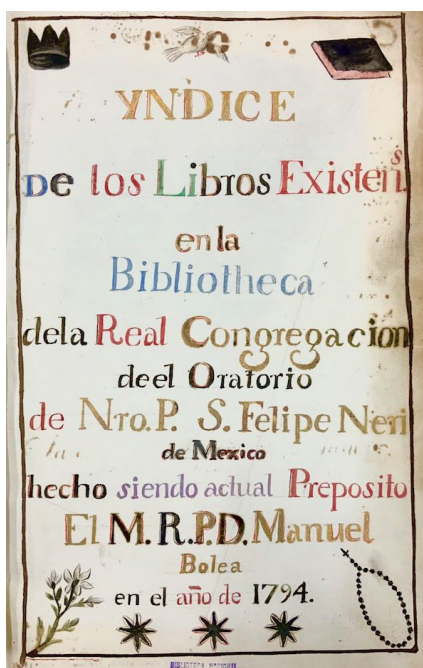 YNDICE
De los Libros Existen.s
en la
Bibliotheca
dela Real Congregacion
de el Oratorio
de Nro. P. S. Felipe Neri
de Mexico
hecho siendo actual Preposito
El M. R. P. D. Manuel
Bolea
en el año de 1794.
BIBLIOTECA NACIONAL